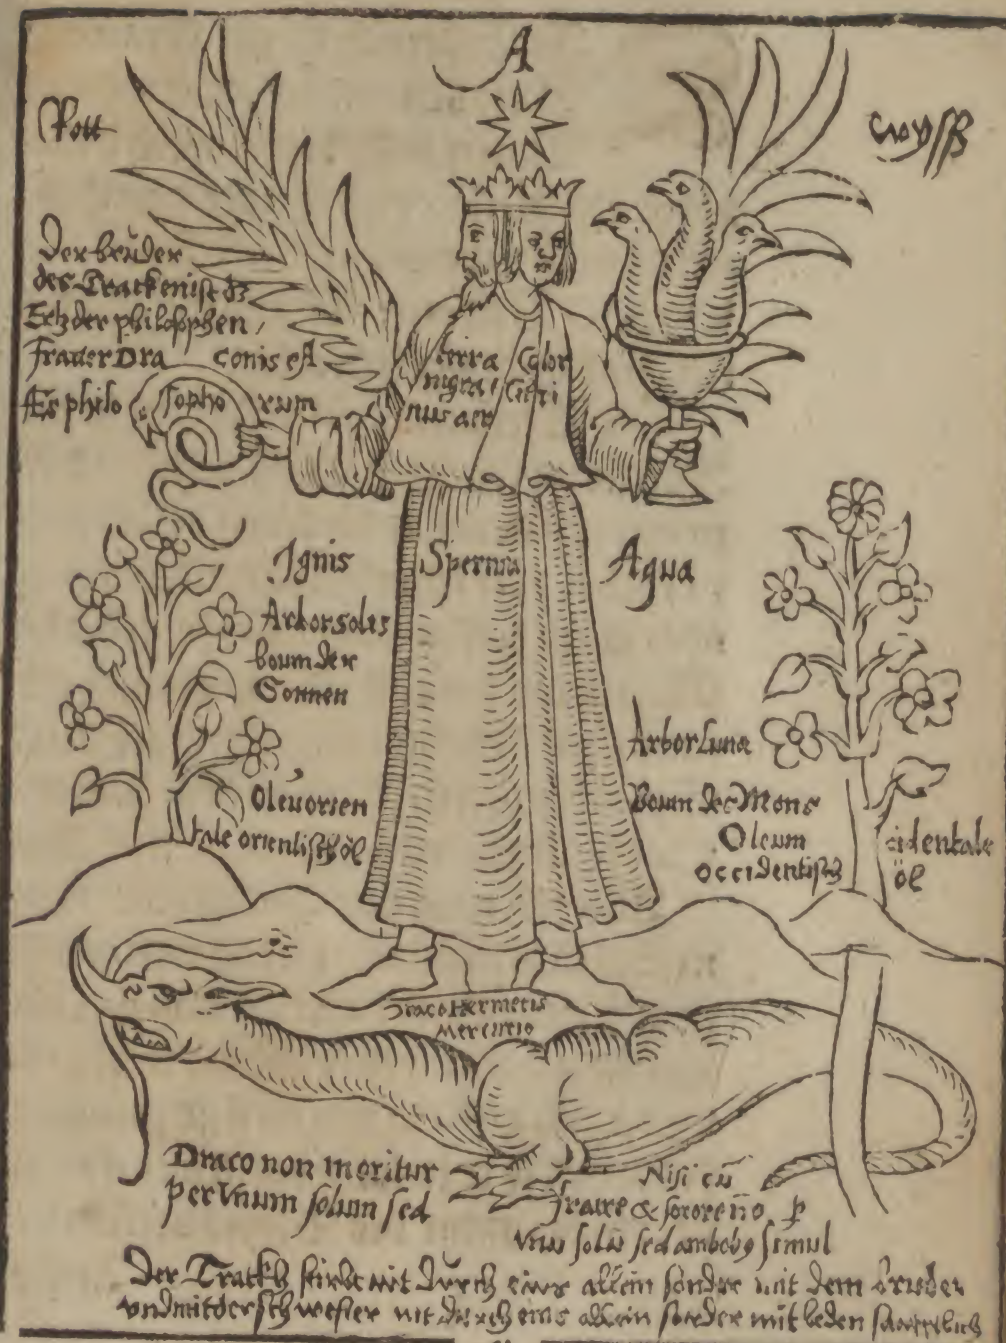 A
Rott
wysß
Der brůder
des Tracken ist dz
Ertz der philosophen,
frater Dra conis est
Æs philo sopho rum
terra Color
nigra, Citri
nus aer
Ignis
Sperma
Aqua
Arbor solis
boum der
Sonnen
Oleu orien
tale orientisch öl
Arbor Luna
Boum des Mons
Oleum
occidentisch
cidentale
öl
Draco Hermetis
Mercurio
Draco non moritur
per Vnum solum sed
Nisi cū
fratre & sorore nō ꝑ
vnū solū sed ambobꝯ simul
Der Trackh stirbt nit durch eins allein sonder mit dem bruder
vnd mit der schwester nit durch eins allein sonder mit beden